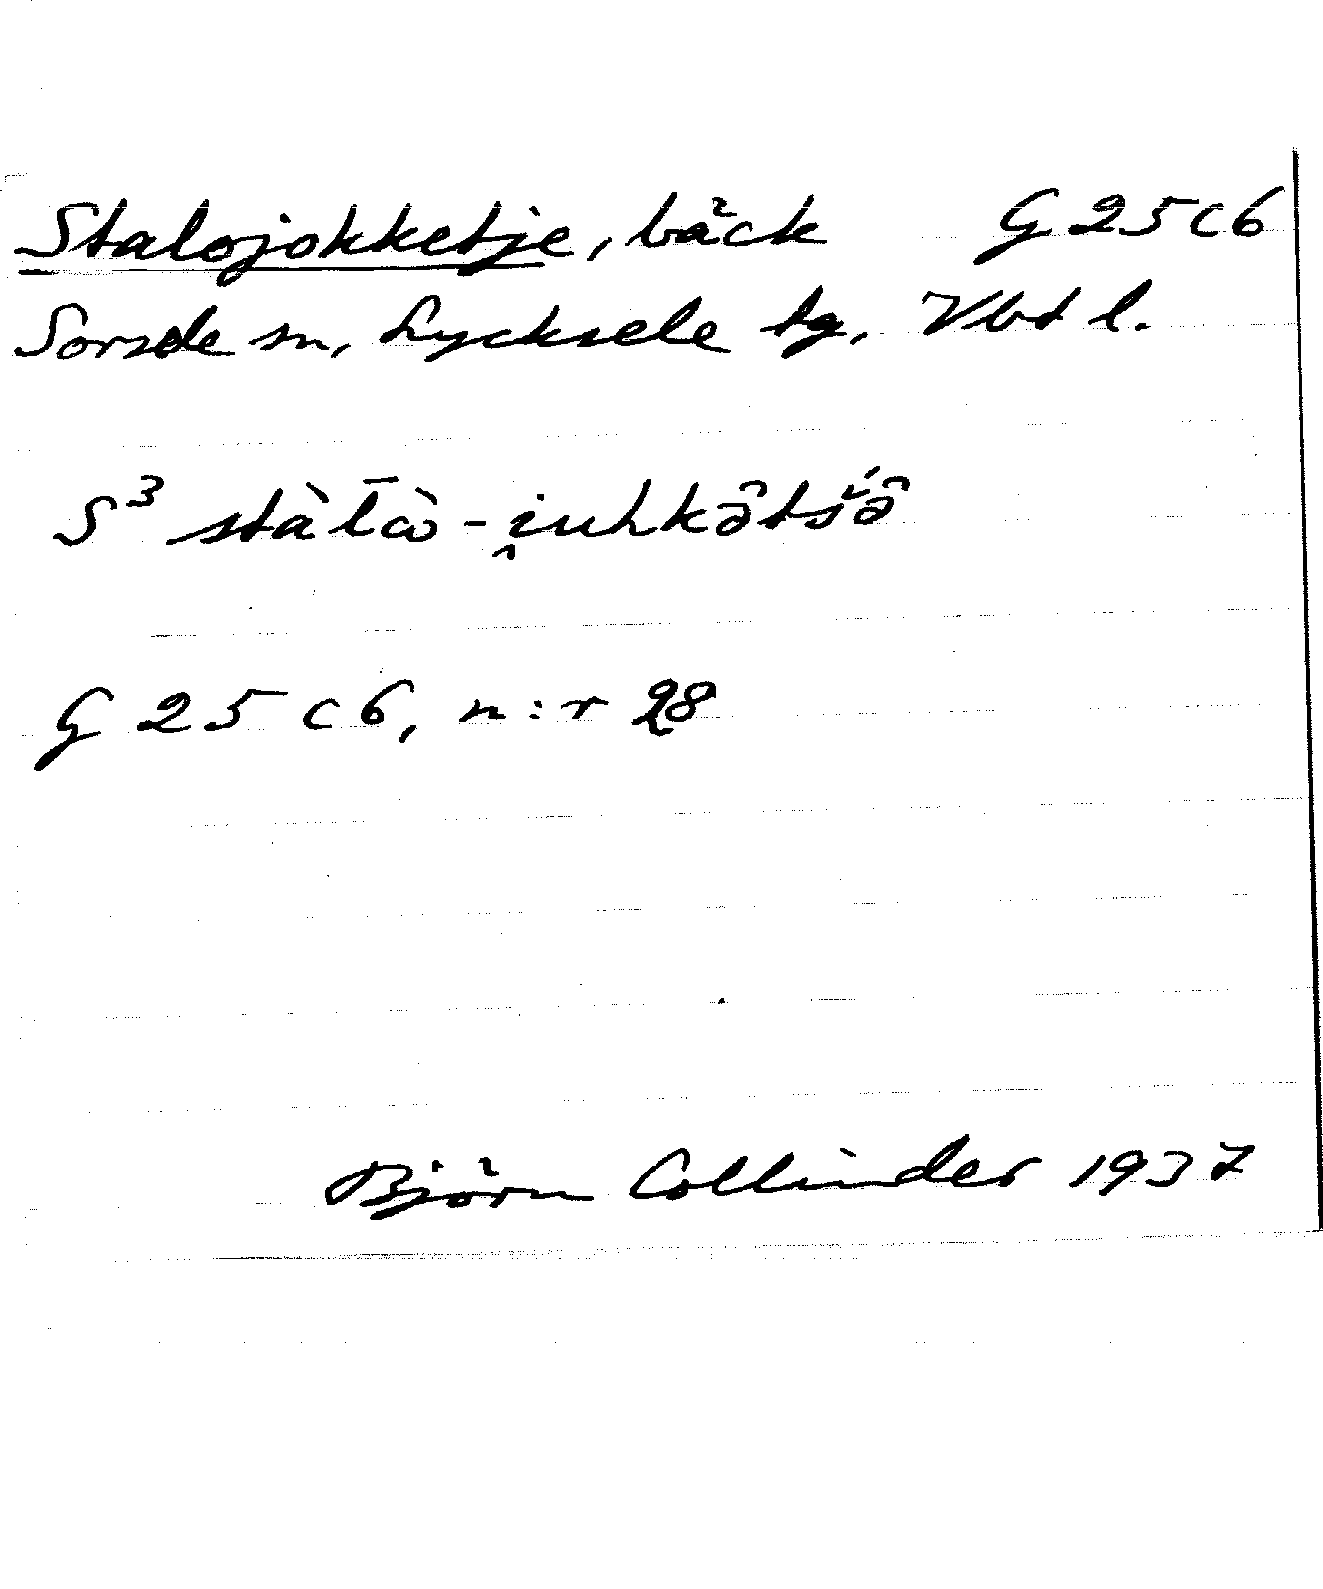 Stalojokketje, bäck G 25 c 6
Sorsele sn, Lycksele tg, Vbt l.
S³ stàl̄ɷ̀ - i̯uhkə̂tš́ə̂
G 25 c 6, n:r 28
Björn Collinder 1937